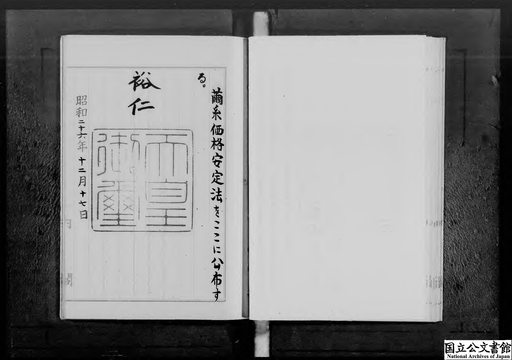 繭糸価格安定法をここに公布す
る。
裕仁
天皇
御璽
昭和二十六年十二月十七日
内閣
国立公文書館
National Archives of Japan